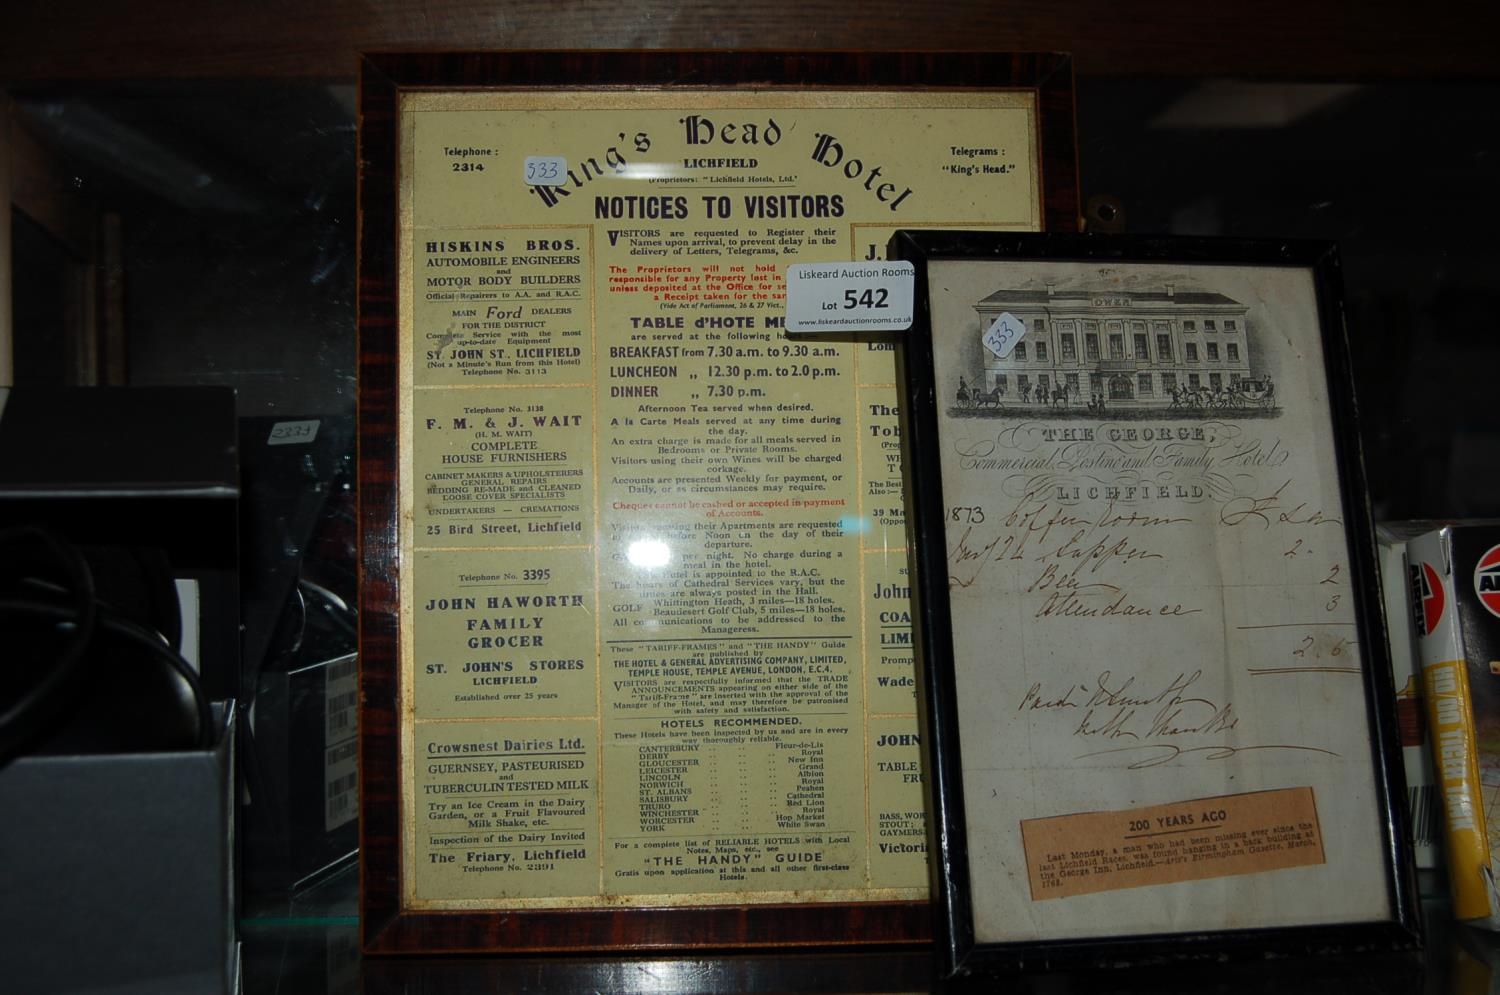 King's Head Hotel
Telephone :
2314
LICHFIELD
(Proprietors: "Lichfield Hotels, Ltd."
Telegrams :
"King's Head."
333
NOTICES TO VISITORS
HISKINS BROS.
AUTOMOBILE ENGINEERS
and
MOTOR BODY BUILDERS
Official Repairers to A.A. and R.A.C.
MAIN Ford DEALERS
FOR THE DISTRICT
Complete Service with the most
up-to-date Equipment
ST. JOHN ST., LICHFIELD
(Not a Minute's Run from this Hotel)
Telephone No. 3113
Telephone No. 3138
F. M. & J. WAIT
(H. M. WAIT)
COMPLETE
HOUSE FURNISHERS
CABINET MAKERS & UPHOLSTERERS
GENERAL REPAIRS
BEDDING RE-MADE and CLEANED
LOOSE COVER SPECIALISTS
UNDERTAKERS — CREMATIONS
25 Bird Street, Lichfield
Telephone No. 3395
JOHN HAWORTH
FAMILY
GROCER
ST. JOHN'S STORES
LICHFIELD
Established over 25 years
Crowsnest Dairies Ltd.
GUERNSEY, PASTEURISED
and
TUBERCULIN TESTED MILK
Try an Ice Cream in the Dairy
Garden, or a Fruit Flavoured
Milk Shake, etc.
Inspection of the Dairy Invited
The Friary, Lichfield
Telephone No. 2391
VISITORS are requested to Register their
Names upon arrival, to prevent delay in the
delivery of Letters, Telegrams, &c.
The Proprietors will not hold
responsible for any Property lost in
unless deposited at the Office for
a Receipt taken for the
(Vide Act of Parliament, 26 & 27 Vict.,
TABLE d'HOTE
are served at the following
BREAKFAST from 7.30 a.m. to 9.30 a.m.
LUNCHEON ,, 12.30 p.m. to 2.0 p.m.
DINNER ,, 7.30 p.m.
Afternoon Tea served when desired.
A la Carte Meals served at any time during
the day.
An extra charge is made for all meals served in
Bedrooms or Private Rooms.
Visitors using their own Wines will be charged
corkage.
Accounts are presented Weekly for payment, or
Daily, or as circumstances may require.
Cheques cannot be cashed or accepted in payment
of Accounts.
their Apartments are requested
before Noon on the day of their
departure.
per night. No charge during a
meal in the hotel.
Hotel is appointed to the R.A.C.
The hours of Cathedral Services vary, but the
times are always posted in the Hall.
GOLF Whittington Heath, 3 miles—18 holes.
Beaudesert Golf Club, 5 miles—18 holes.
All communications to be addressed to the
Manageress.
These "TARIFF-FRAMES" and "THE HANDY" Guide
are published by
THE HOTEL & GENERAL ADVERTISING COMPANY, LIMITED,
TEMPLE HOUSE, TEMPLE AVENUE, LONDON, E.C.4.
VISITORS are respectfully informed that the TRADE
ANNOUNCEMENTS appearing on either side of the
"Tariff-Frame" are inserted with the approval of the
Manager of the Hotel, and may therefore be patronised
with safety and satisfaction.
HOTELS RECOMMENDED.
These Hotels have been inspected by us and are in every
way thoroughly reliable.
CANTERBURY .. .. Fleur-de-Lis
DERBY .. .. Royal
GLOUCESTER .. .. New Inn
LEICESTER .. .. Grand
LINCOLN .. .. Albion
NORWICH .. .. Royal
ST. ALBANS .. .. Peahen
SALISBURY .. .. Cathedral
TRURO .. .. Red Lion
WINCHESTER .. .. Royal
WORCESTER .. .. Hop Market
YORK .. .. White Swan
For a complete list of RELIABLE HOTELS with Local
Notes, Maps, etc., see
"THE HANDY" GUIDE
Gratis upon application at this and all other first-class
Hotels.
J.
Lon
The
Tob
The Best
Also :—
39 Ma
(Oppos
John
COA
LIMI
Promp
Wade
JOHN
TABLE
FRU
BASS, WOR
STOUT;
GAYMERS
Victori
Liskeard Auction Rooms
Lot 542
www.liskeardauctionrooms.co.uk
333
THE GEORGE,
Commercial, Posting and Family Hotel.
LICHFIELD.
1873 Coffee Room
24 Supper 2.
Beer 2
Attendance 3
2. 5
Paid
With Thanks
200 YEARS AGO
Last Monday, a man who had been missing ever since the
last Lichfield Races, was found hanging in a back building at
the George Inn, Lichfield.—Aris's Birmingham Gazette, March,
1762.
2339
AIRFIX